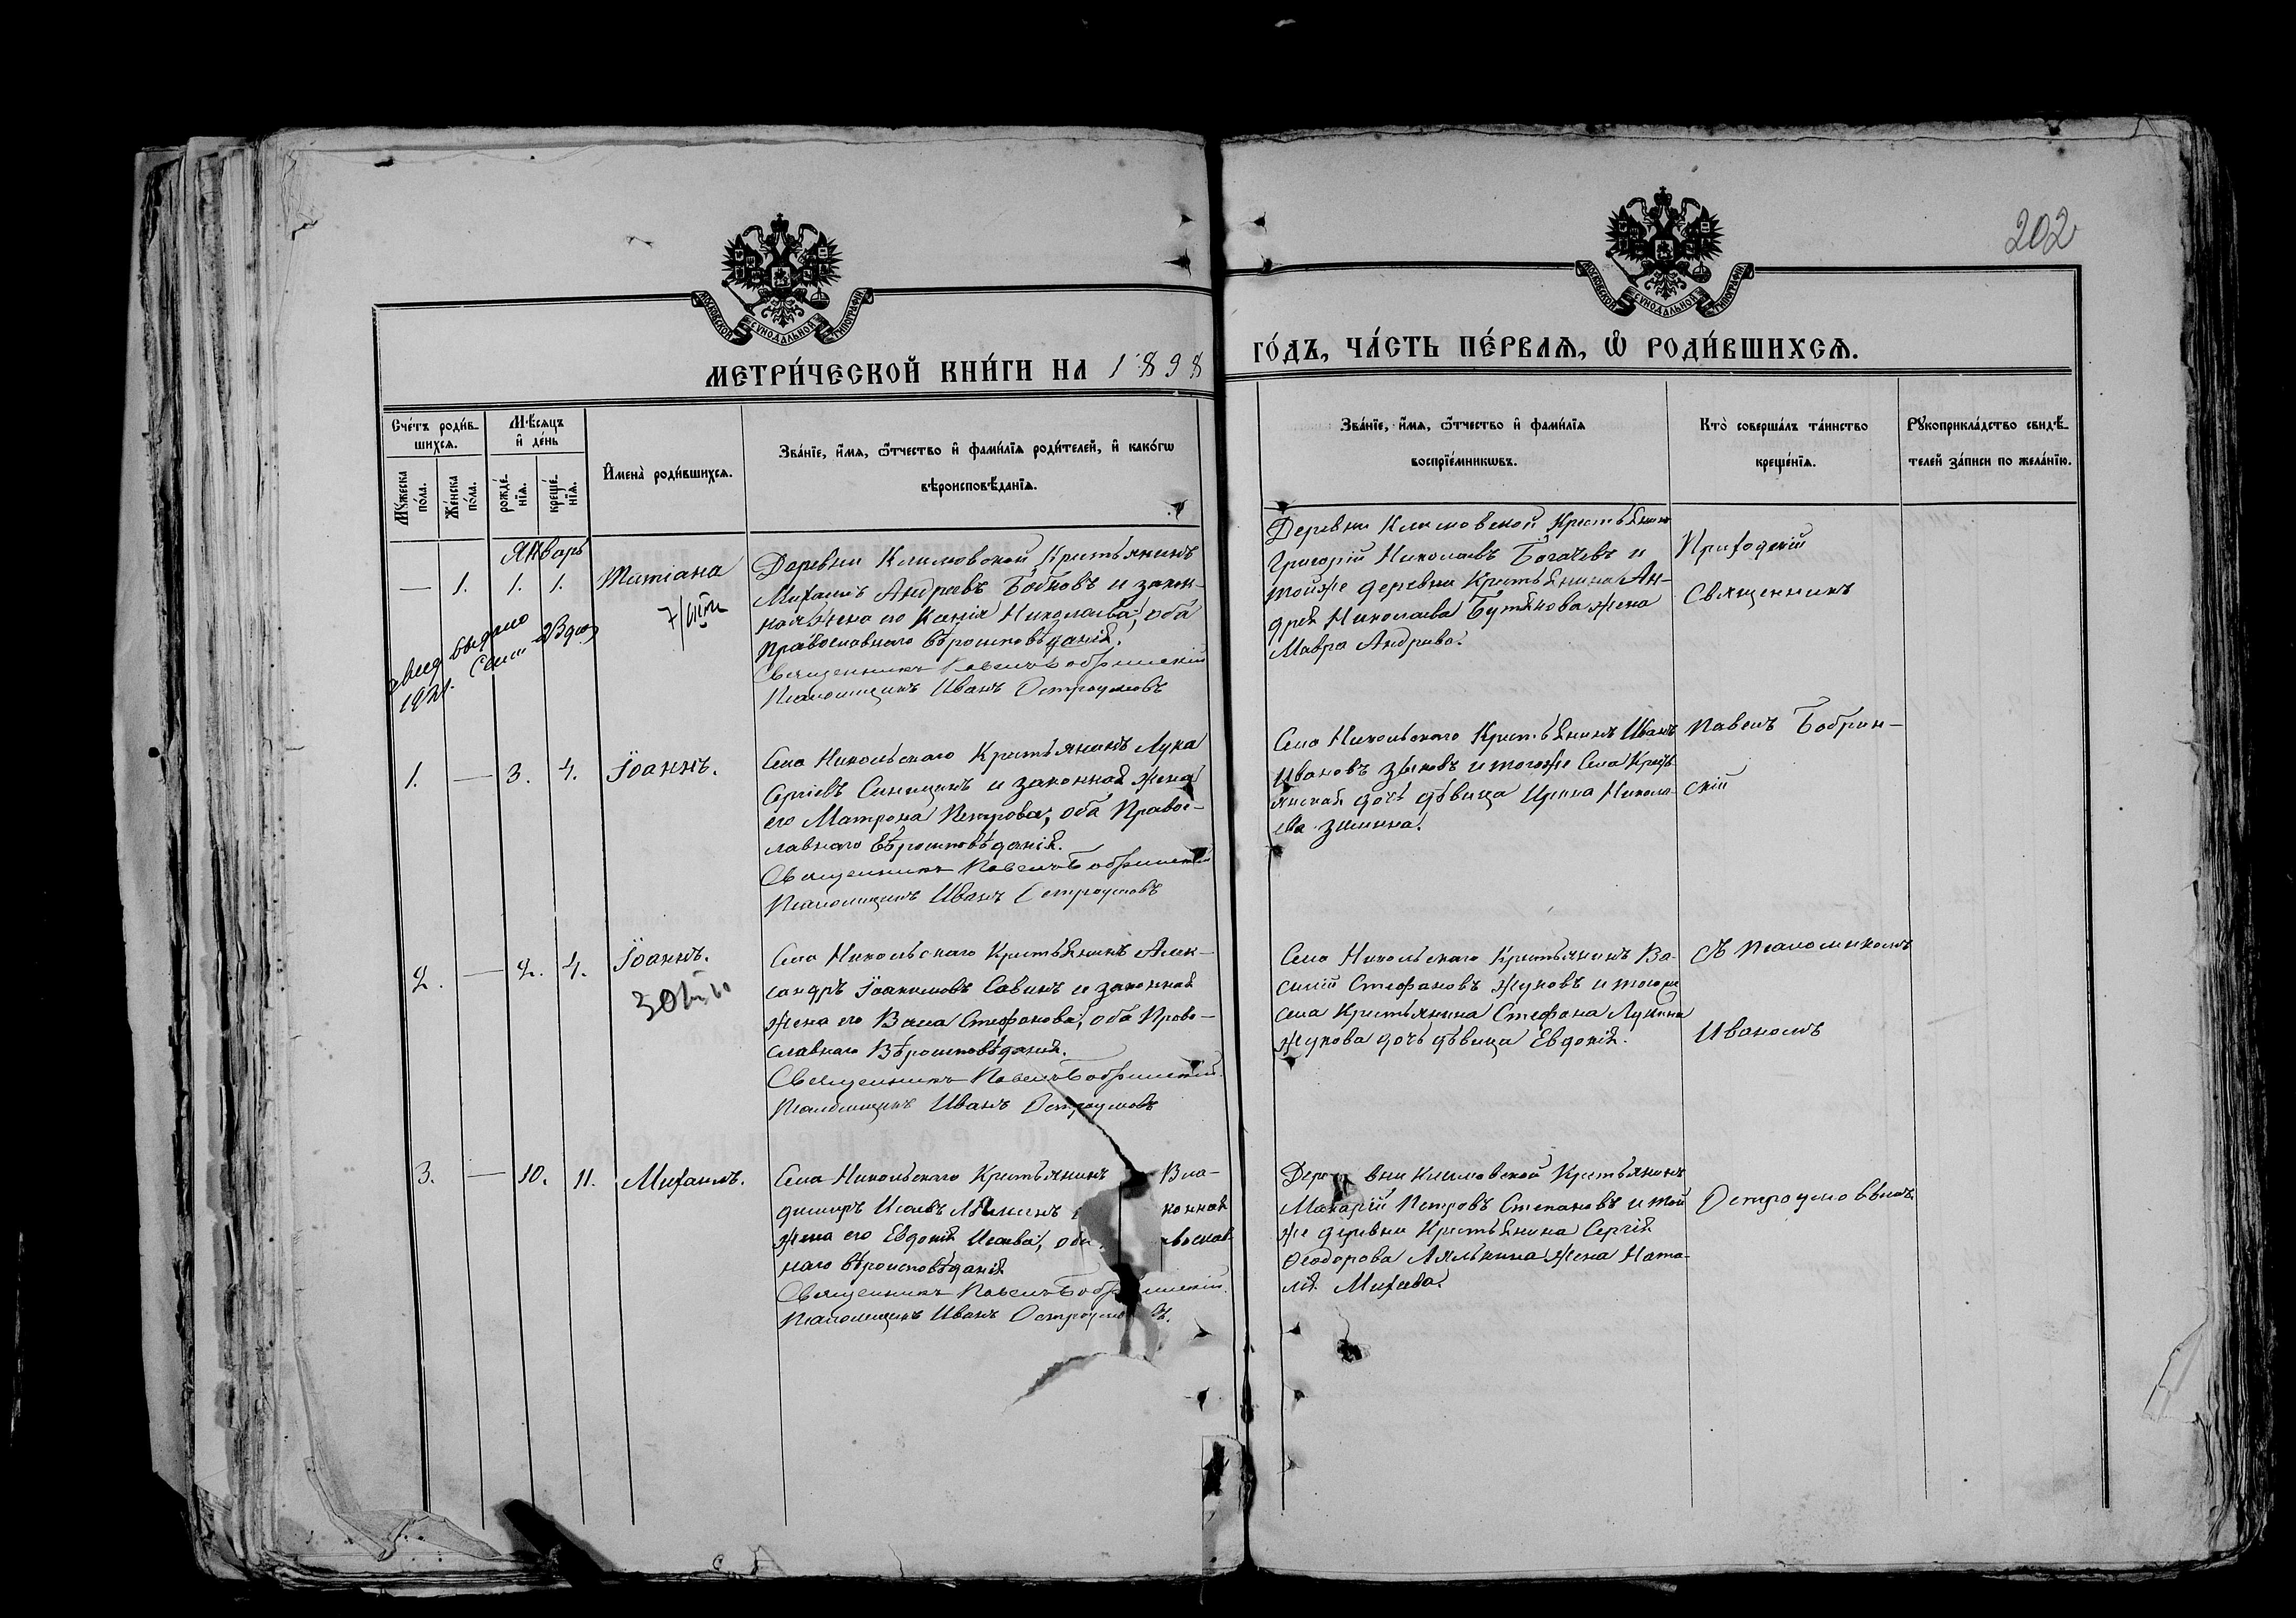 202
МОСКОВСКОЙ СѴНОДАЛЬНОЙ ТИПОГРАФІИ
МОСКОВСКОЙ СѴНОДАЛЬНОЙ ТИПОГРАФІИ
МЕТРИ́ЧЕСКОЙ КНИ́ГИ НА 1898
ГО́ДЪ, ЧА́СТЬ ПЕ́РВАѦ, Ѡ҆ РОДИ́ВШИХСѦ.
Сче́тъ роди́в-
шихсѧ.
Мꙋ́жеска
по́ла.
Же́нска
по́ла.
Мѣ́сѧцъ
и҆ де́нь
рожде́-
нїѧ.
креще́-
нїѧ.
И҆мена̀ роди́вшихсѧ.
Зва́нїе, и҆́мѧ, ѻ҆́тчество и҆ фами́лїѧ роди́телей, и҆ како́гѡ
вѣроисповѣ́данїѧ.
Зва́нїе, и҆́мѧ, ѻ҆́тчество и҆ фами́лїѧ
воспрїе́мникѡвъ.
Кто̀ соверша́лъ та́инство
креще́нїѧ.
Рꙋкоприкла́дство свидѣ́-
телей за́писи по жела́нїю.
Январь
— 1. 1. 1. Татіана
Деревни Климовской Крестьянинъ
Михаилъ Андреевъ Бобковъ и закон-
ная жена его Ксенія Николаева, оба
православнаго вѣроисповѣданія.
Священникъ Павелъ Бобринскій
Псаломщикъ Иванъ Остроумовъ
выдано
1921. Сент 23 дня
Деревни Климовской Крестьянинъ
Григорій Николаевъ Богачевъ и
тойже деревни Крестьянина Ан-
дрея Николаева жена
Мавра Андреева.
Приходскій
Священникъ
1. — 3. 4. Іоаннъ.
Села Никольскаго Крестьянинъ Лука
Сергіевъ Синицинъ и законная жена
его Матрона Петрова, оба Право-
славнаго вѣроисповѣданія.
Священникъ Павелъ Бобринскій
Псаломщикъ Иванъ Остроумовъ
Села Никольскаго Крестьянинъ Иванъ
Ивановъ Зыковъ и тогоже Села Кресть
янская дочь дѣвица Ирина Никола-
ева Зимина.
Павелъ Бобрин-
скій
2. — 2. 4. Іоаннъ.
Села Никольскаго Крестьянинъ Алек-
сандръ Іоакимовъ Савинъ и законная
жена его Васса Стефанова, оба Право-
славнаго Вѣроисповѣданія.
Священникъ Павелъ Бобринскій.
Псаломщикъ Иванъ Остроумовъ
Села Никольскаго Крестьянинъ Ва-
силій Стефановъ Жуковъ и тогоже
села Крестьянина Стефана Лукина
Жукова дочь дѣвица Евдокія.
съ псаломщикомъ
Иваномъ
3. — 10. 11. Михаилъ.
Села Никольскаго Крестьянинъ Вла-
диміръ Исаевъ конная
жена его Евдокія Исаева, оба
наго вѣроисповѣданія
Священникъ Павелъ Бобринскій.
Псаломщикъ Иванъ Остроумовъ.
Деревни Климовской Крестьянинъ
Макарій Петровъ Степановъ и той
же деревни Крестьянина Сергія
Ѳеодорова Лялькина жена Ната-
лія Михеева.
Остроумовымъ.